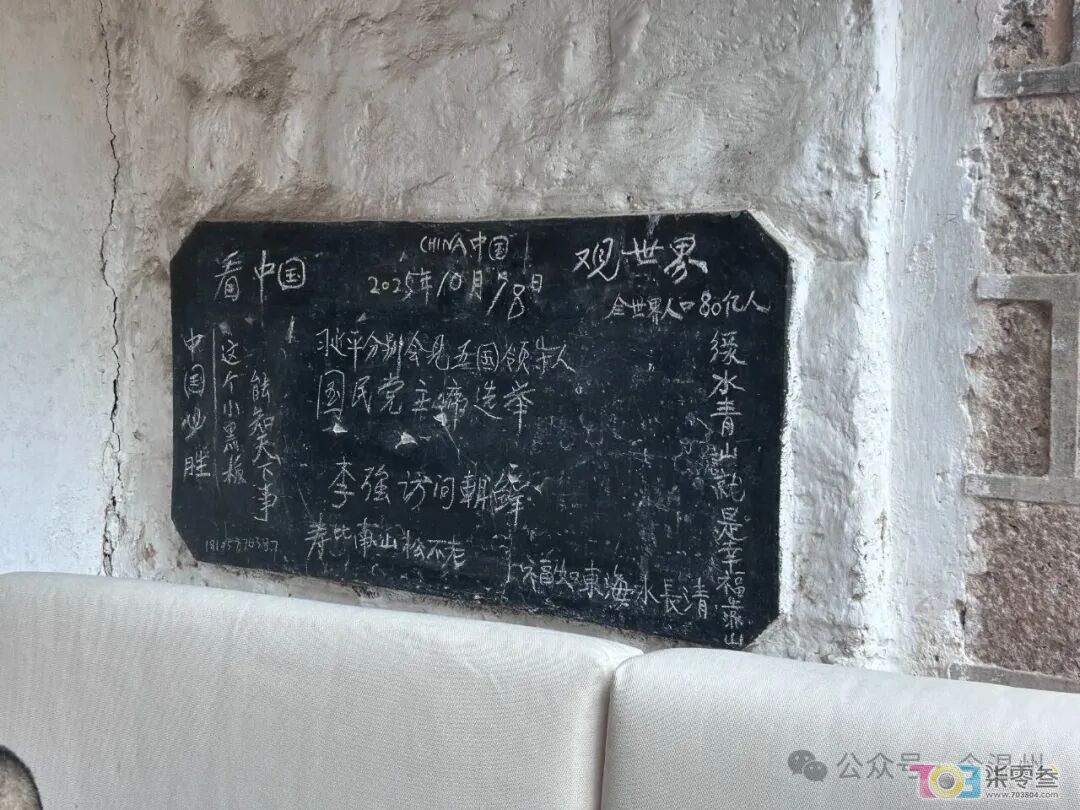 CHINA 中国
看中国
2025年10月18日
观世界
全世界人口80亿人
中国必胜
这个小黑板
能知天下事
习近平分别会见五国领导人
国民党主席选举
李强访问朝鲜
寿比南山松不老
福如東海水長清
绿水青山就是幸福靠山
公众号
703
柒零叁
www.703804.com